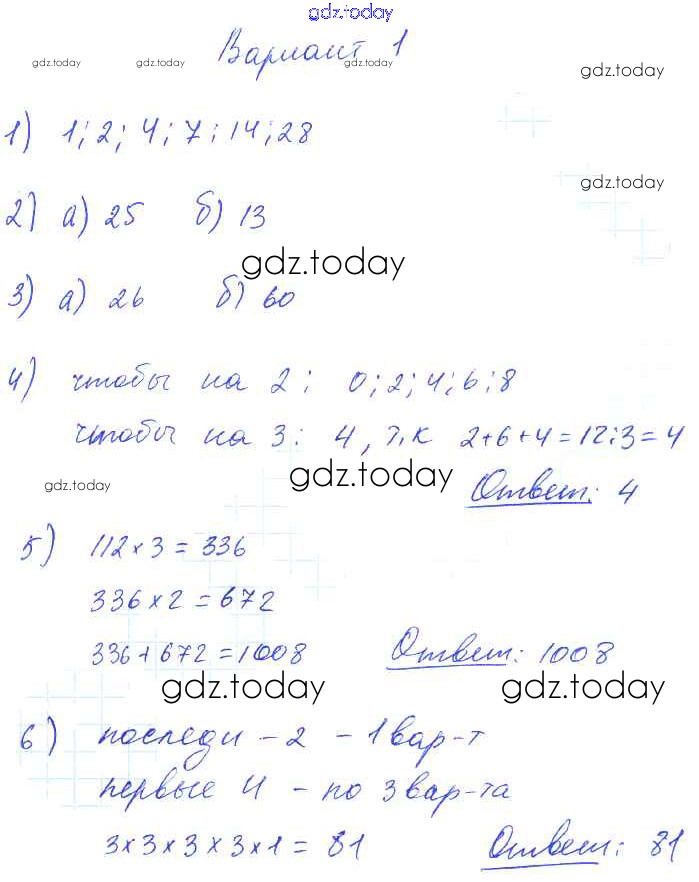 gdz.today
Вариант 1
gdz.today gdz.today gdz.today
1) 1; 2; 4; 7; 14; 28
gdz.today
2) а) 25 б) 13
gdz.today
3) а) 26 б) 60
4) чтобы на 2: 0; 2; 4; 6; 8
чтобы на 3: 4, т.к 2+6+4=12:3=4
gdz.today gdz.today
Ответ: 4
5) 112×3=336
336×2=672
336+672=1008 Ответ: 1008
gdz.today gdz.today
6) последи – 2 – 1 вар-т
первые 4 – по 3 вар-та
3×3×3×3×1=81 Ответ: 81